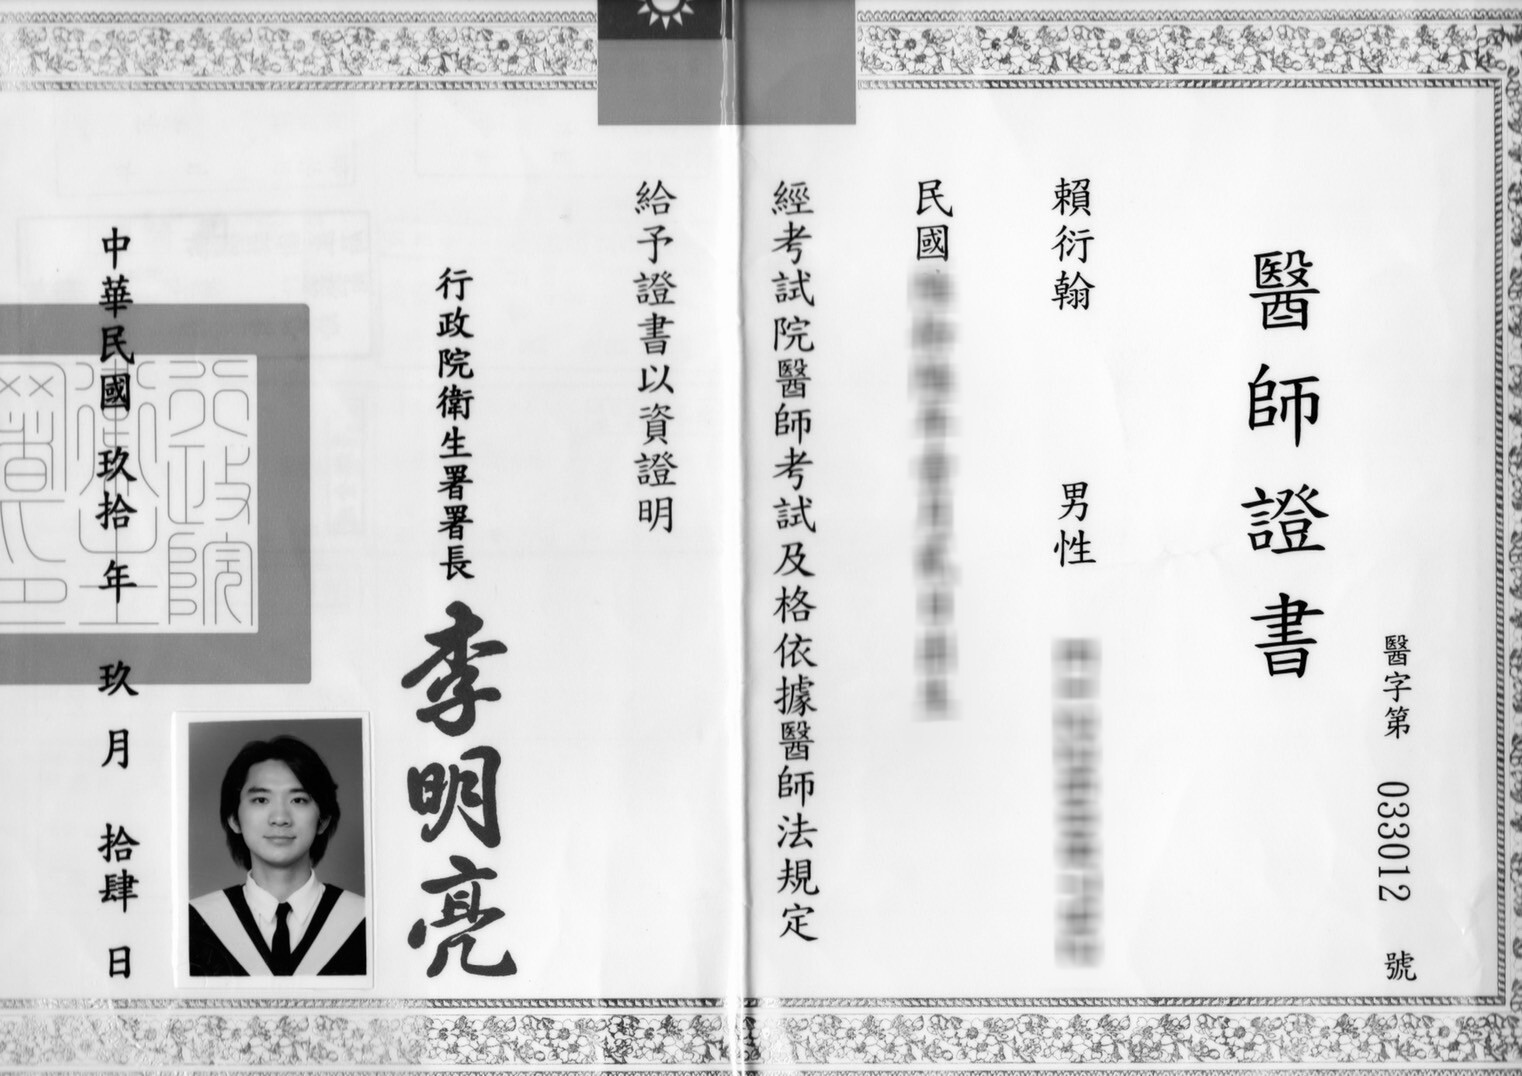 醫字第 033012 號
醫師證書
賴衍翰 男性
民國
經考試院醫師考試及格依據醫師法規定
給予證書以資證明
行政院衛生署署長 李明亮
中華民國 玖拾年 玖月 拾肆日
行政院